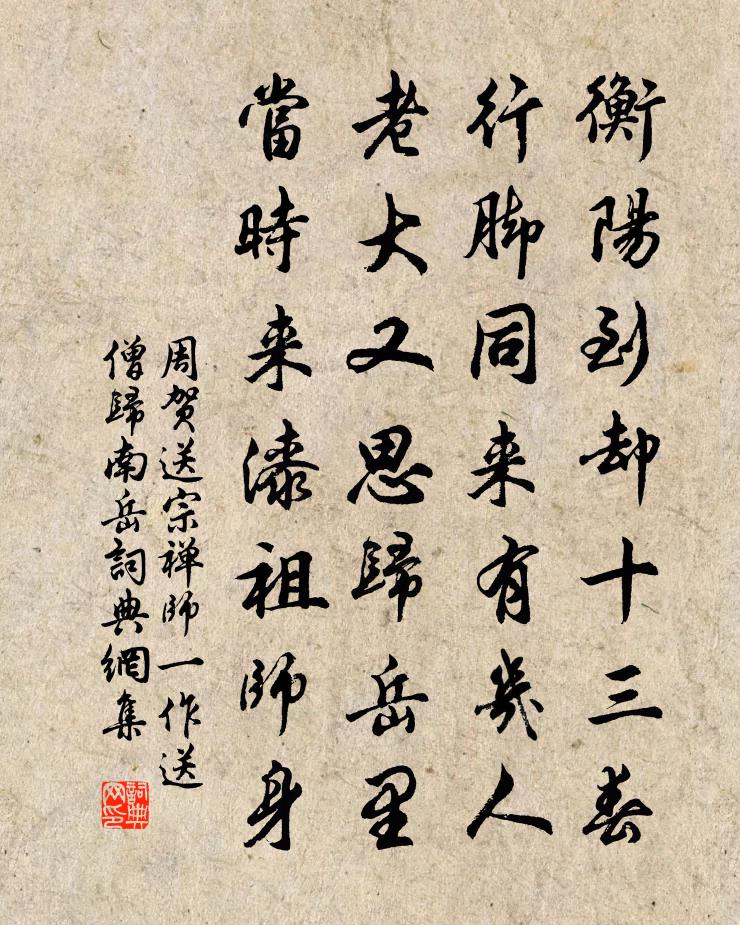 衡陽到却十三春
行脚同来有幾人
老大又思歸岳里
當時来漆祖師身
周賀送宗禅師一作送
僧歸南岳詞典網集
詞典网印